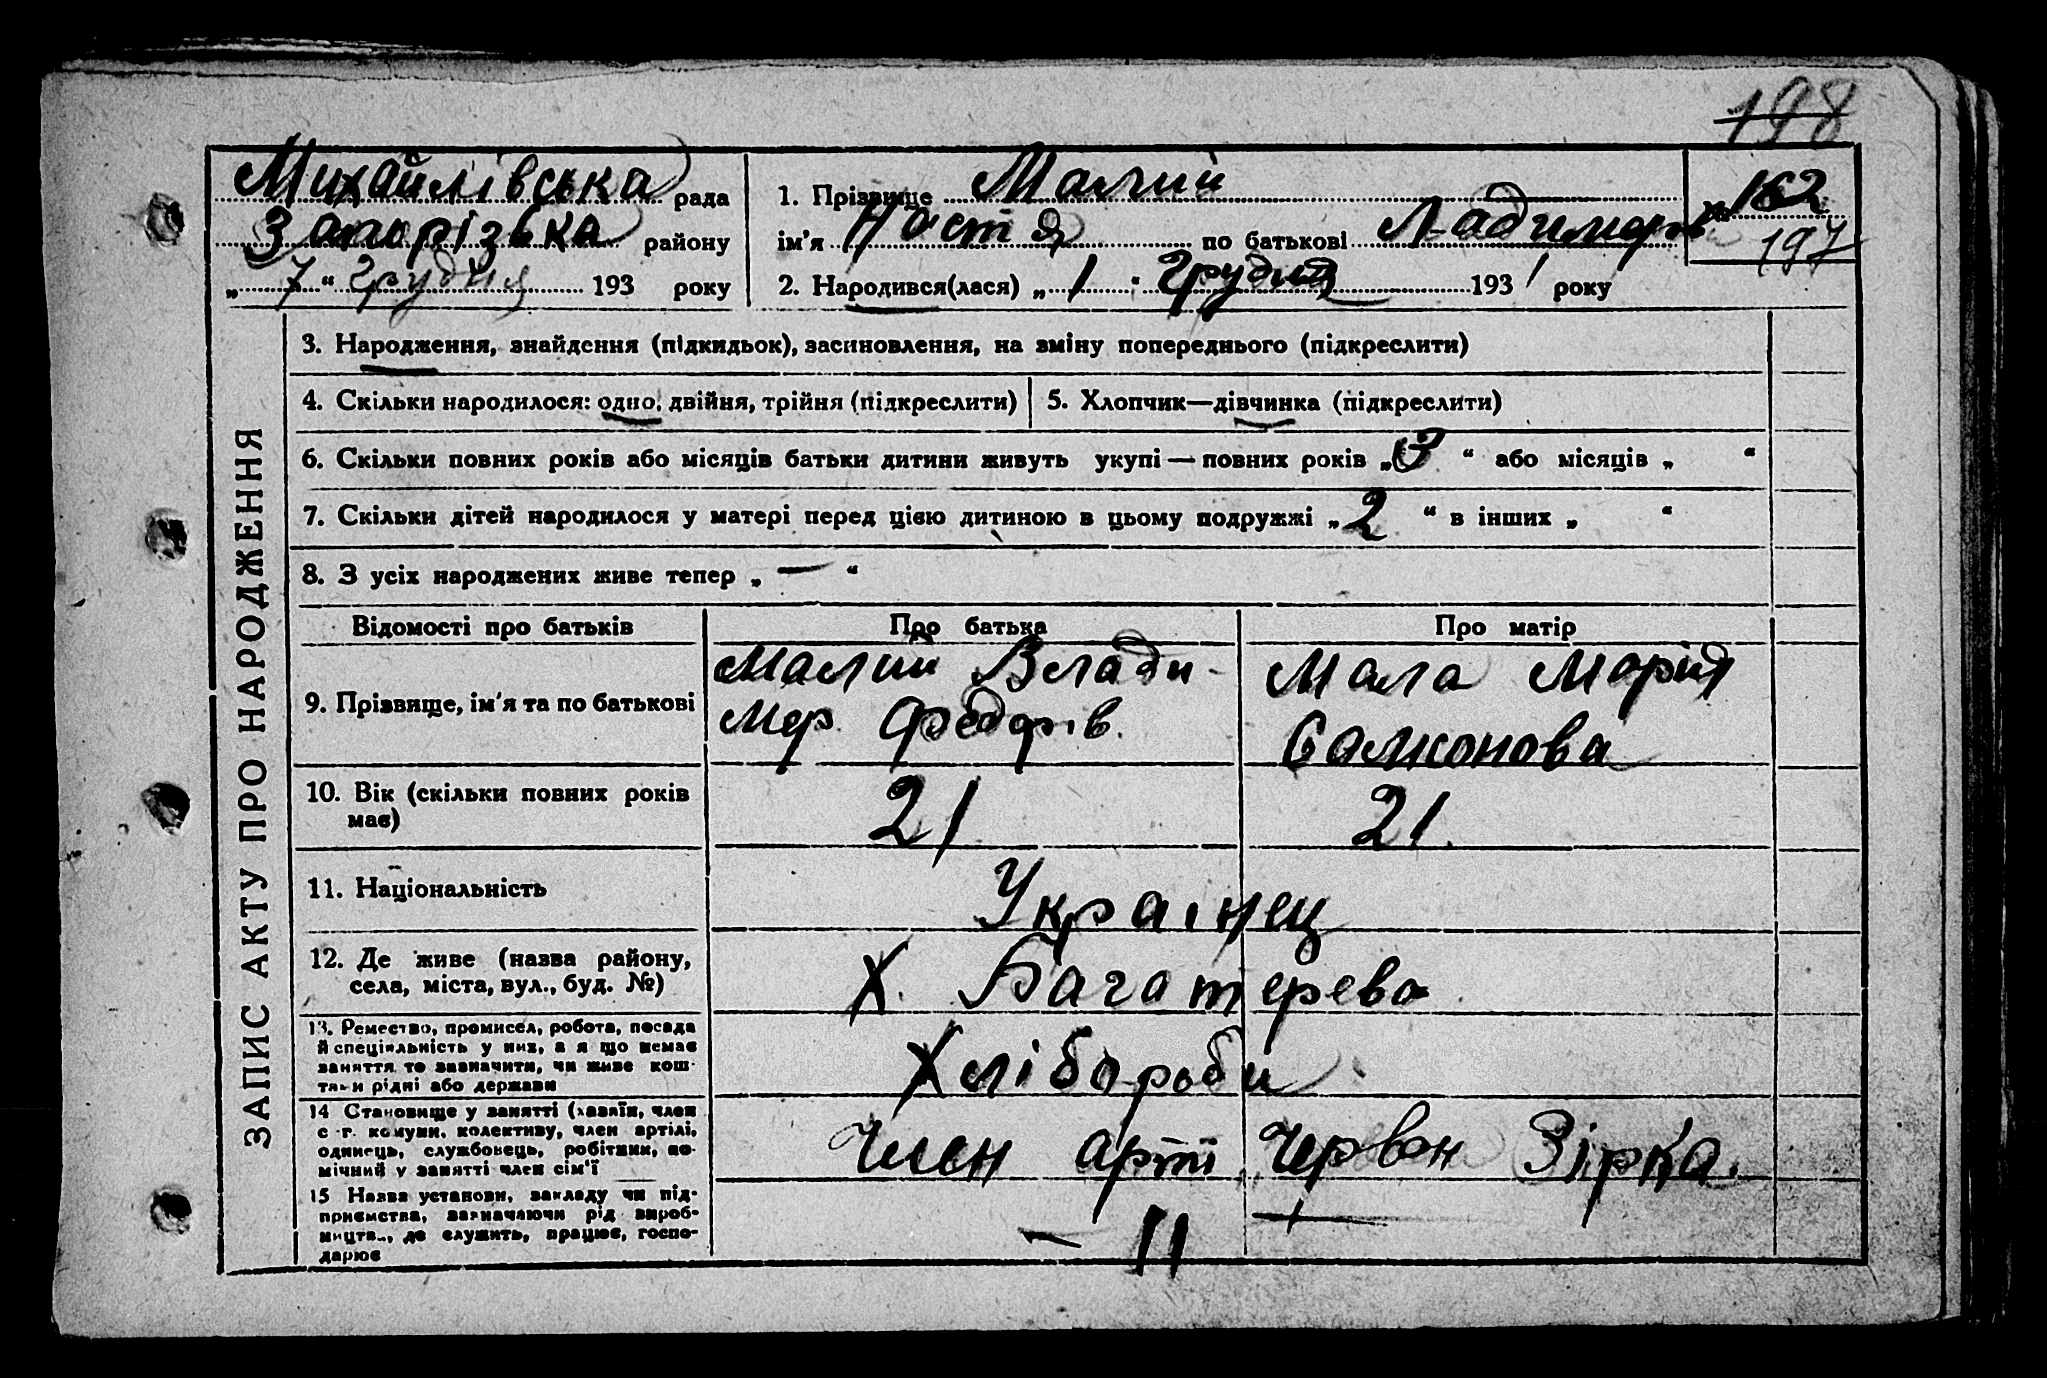 198
Михайлівська рада
Запорізька району
„ 7 “ Грудня 193 року
1. Прізвище Малий
№ 162
197
ім'я Настя по батькові Ладимерів
2. Народився(лася) „ 1 “ Грудня 1931 року
ЗАПИС АКТУ ПРО НАРОДЖЕННЯ
3. Народження, знайдення (підкидьок), засиновлення, на зміну попереднього (підкреслити)
4. Скільки народилося: одно, двійня, трійня (підкреслити)
5. Хлопчик—дівчинка (підкреслити)
6. Скільки повних років або місяців батьки дитини живуть укупі — повних років „ 3 “ або місяців „ “
7. Скільки дітей народилося у матері перед цією дитиною в цьому подружжі „ 2 “ в інших „ “
8. З усіх народжених живе тепер „ — “
Відомості про батьків Про батька Про матір
9. Прізвище, ім'я та по батькові
Малий Влади-
мер Федорів.
Мала Марія
Самсонова
10. Вік (скільки повних років
має)
21 21.
11. Національність
Украінец
12. Де живе (назва району,
села, міста, вул., буд. №)
Х. Багатерева
13. Ремество, промисел, робота, посада
й спеціяльність у них, а я що немає
заняття то зазначити, чи живе кош-
тами рідні або держави
Хлібороби
14 Становище у занятті (хазяїн, член
с.-г. комуни, колективу, член артілі,
одинець, службовець, робітник, по-
мічний у занятті член сім'ї
Член арті Червон Зірка.
15 Назва установи, закладу чи під-
приємства, зазначаючи рід вироб-
ництва, де служить, працює, госпо-
дарює
— 11 —